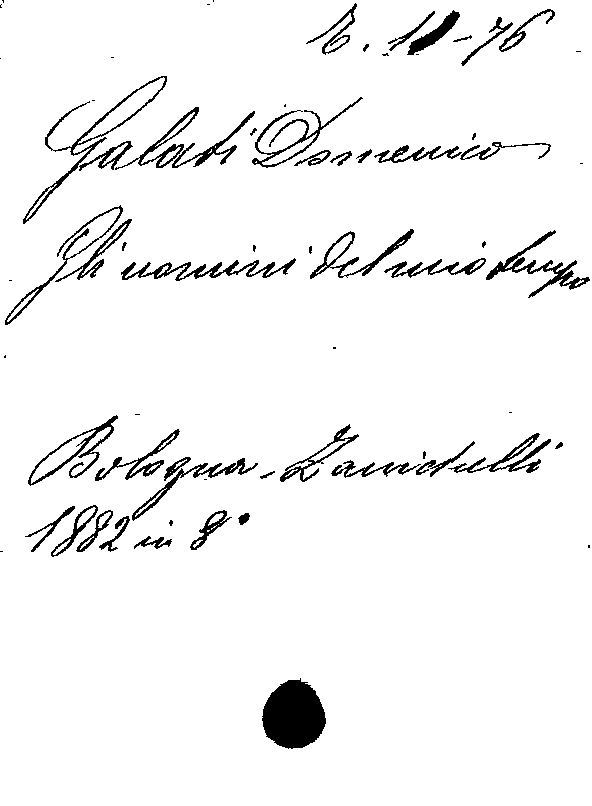 Galati Domenico
Gli uomini del mio tempo
Bologna - Zanichelli
1882 in 8°